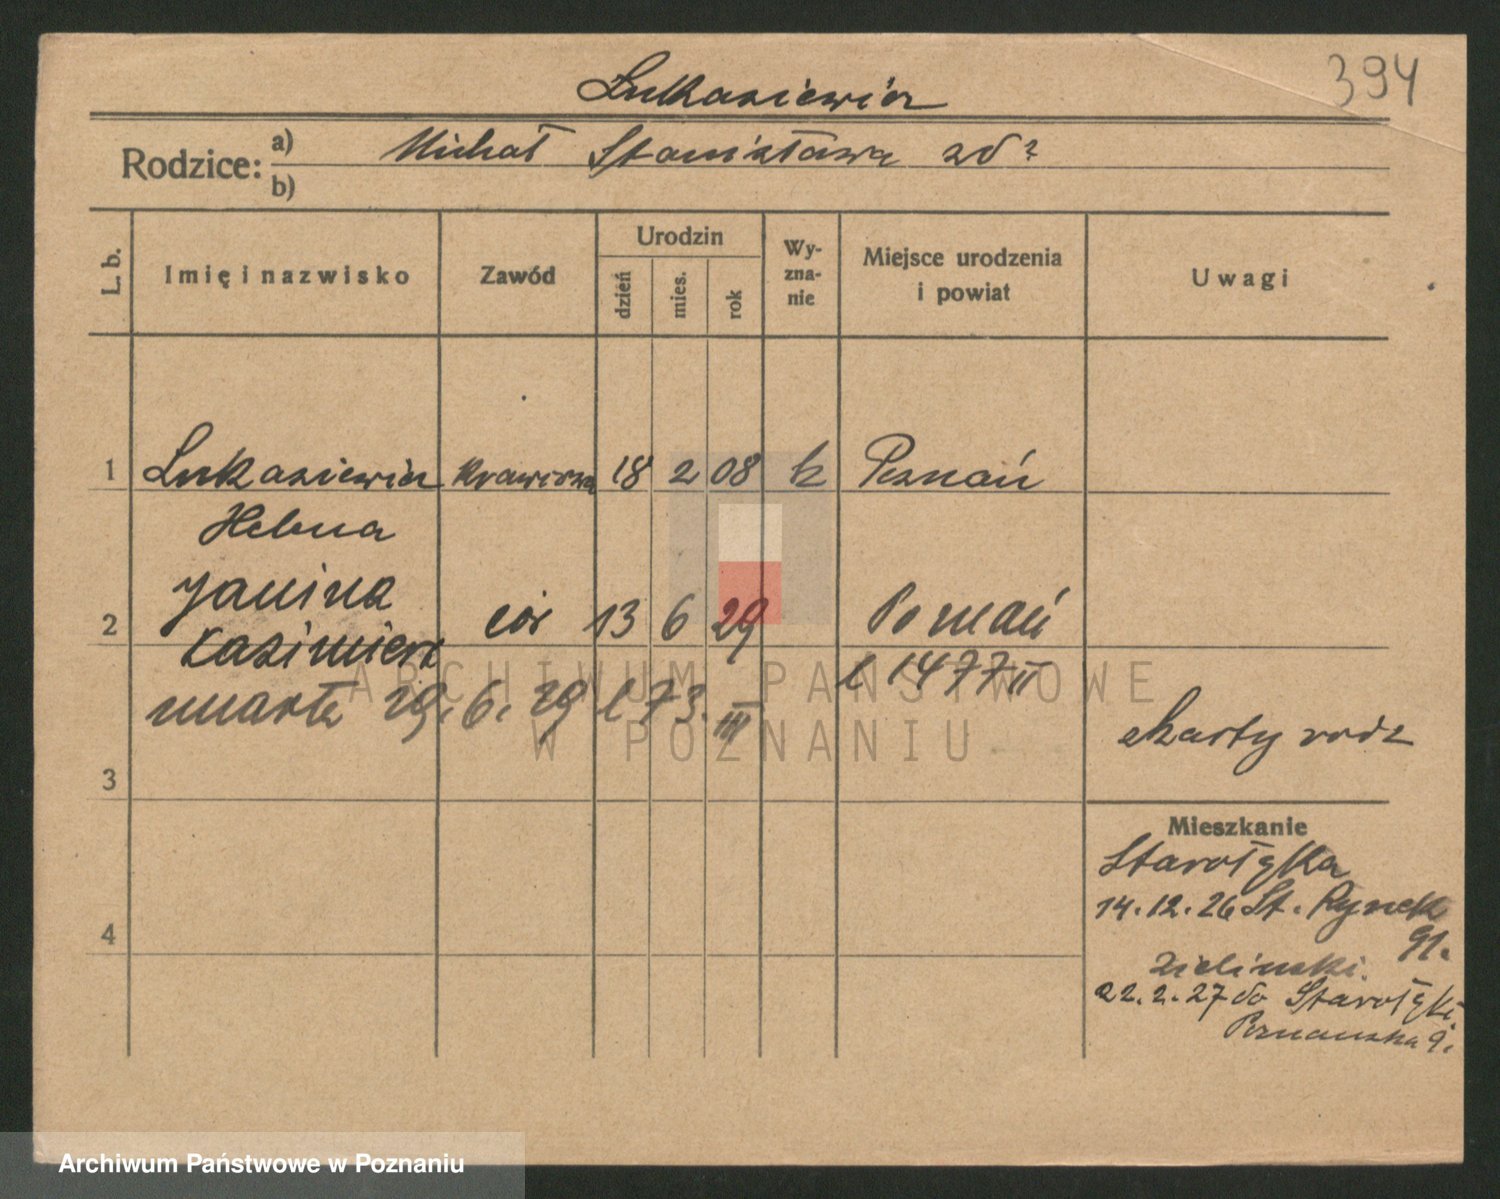 394
Łukasiewicz
Rodzice: a) Michał Stanisława zd ?
b)
L. b. Imię i nazwisko Zawód Urodzin dzień mies. rok Wy-zna-nie Miejsce urodzenia i powiat Uwagi
1 Łukasiewicz Krawcowa 18 2 08 k Poznań
Helena
Janina
2 Kazimiera cór 13 6 29 Poznań
l 1477 II
zmarła 29. 6. 29 l 73. III
z karty rodz
3
Mieszkanie
Starołęka
14.12.26 St. Rynek
91.
4
Zieliński.
22.2.27 do Starołęki
Poznańska 9.
ARCHIWUM PAŃSTWOWE
W POZNANIU
Archiwum Państwowe w Poznaniu